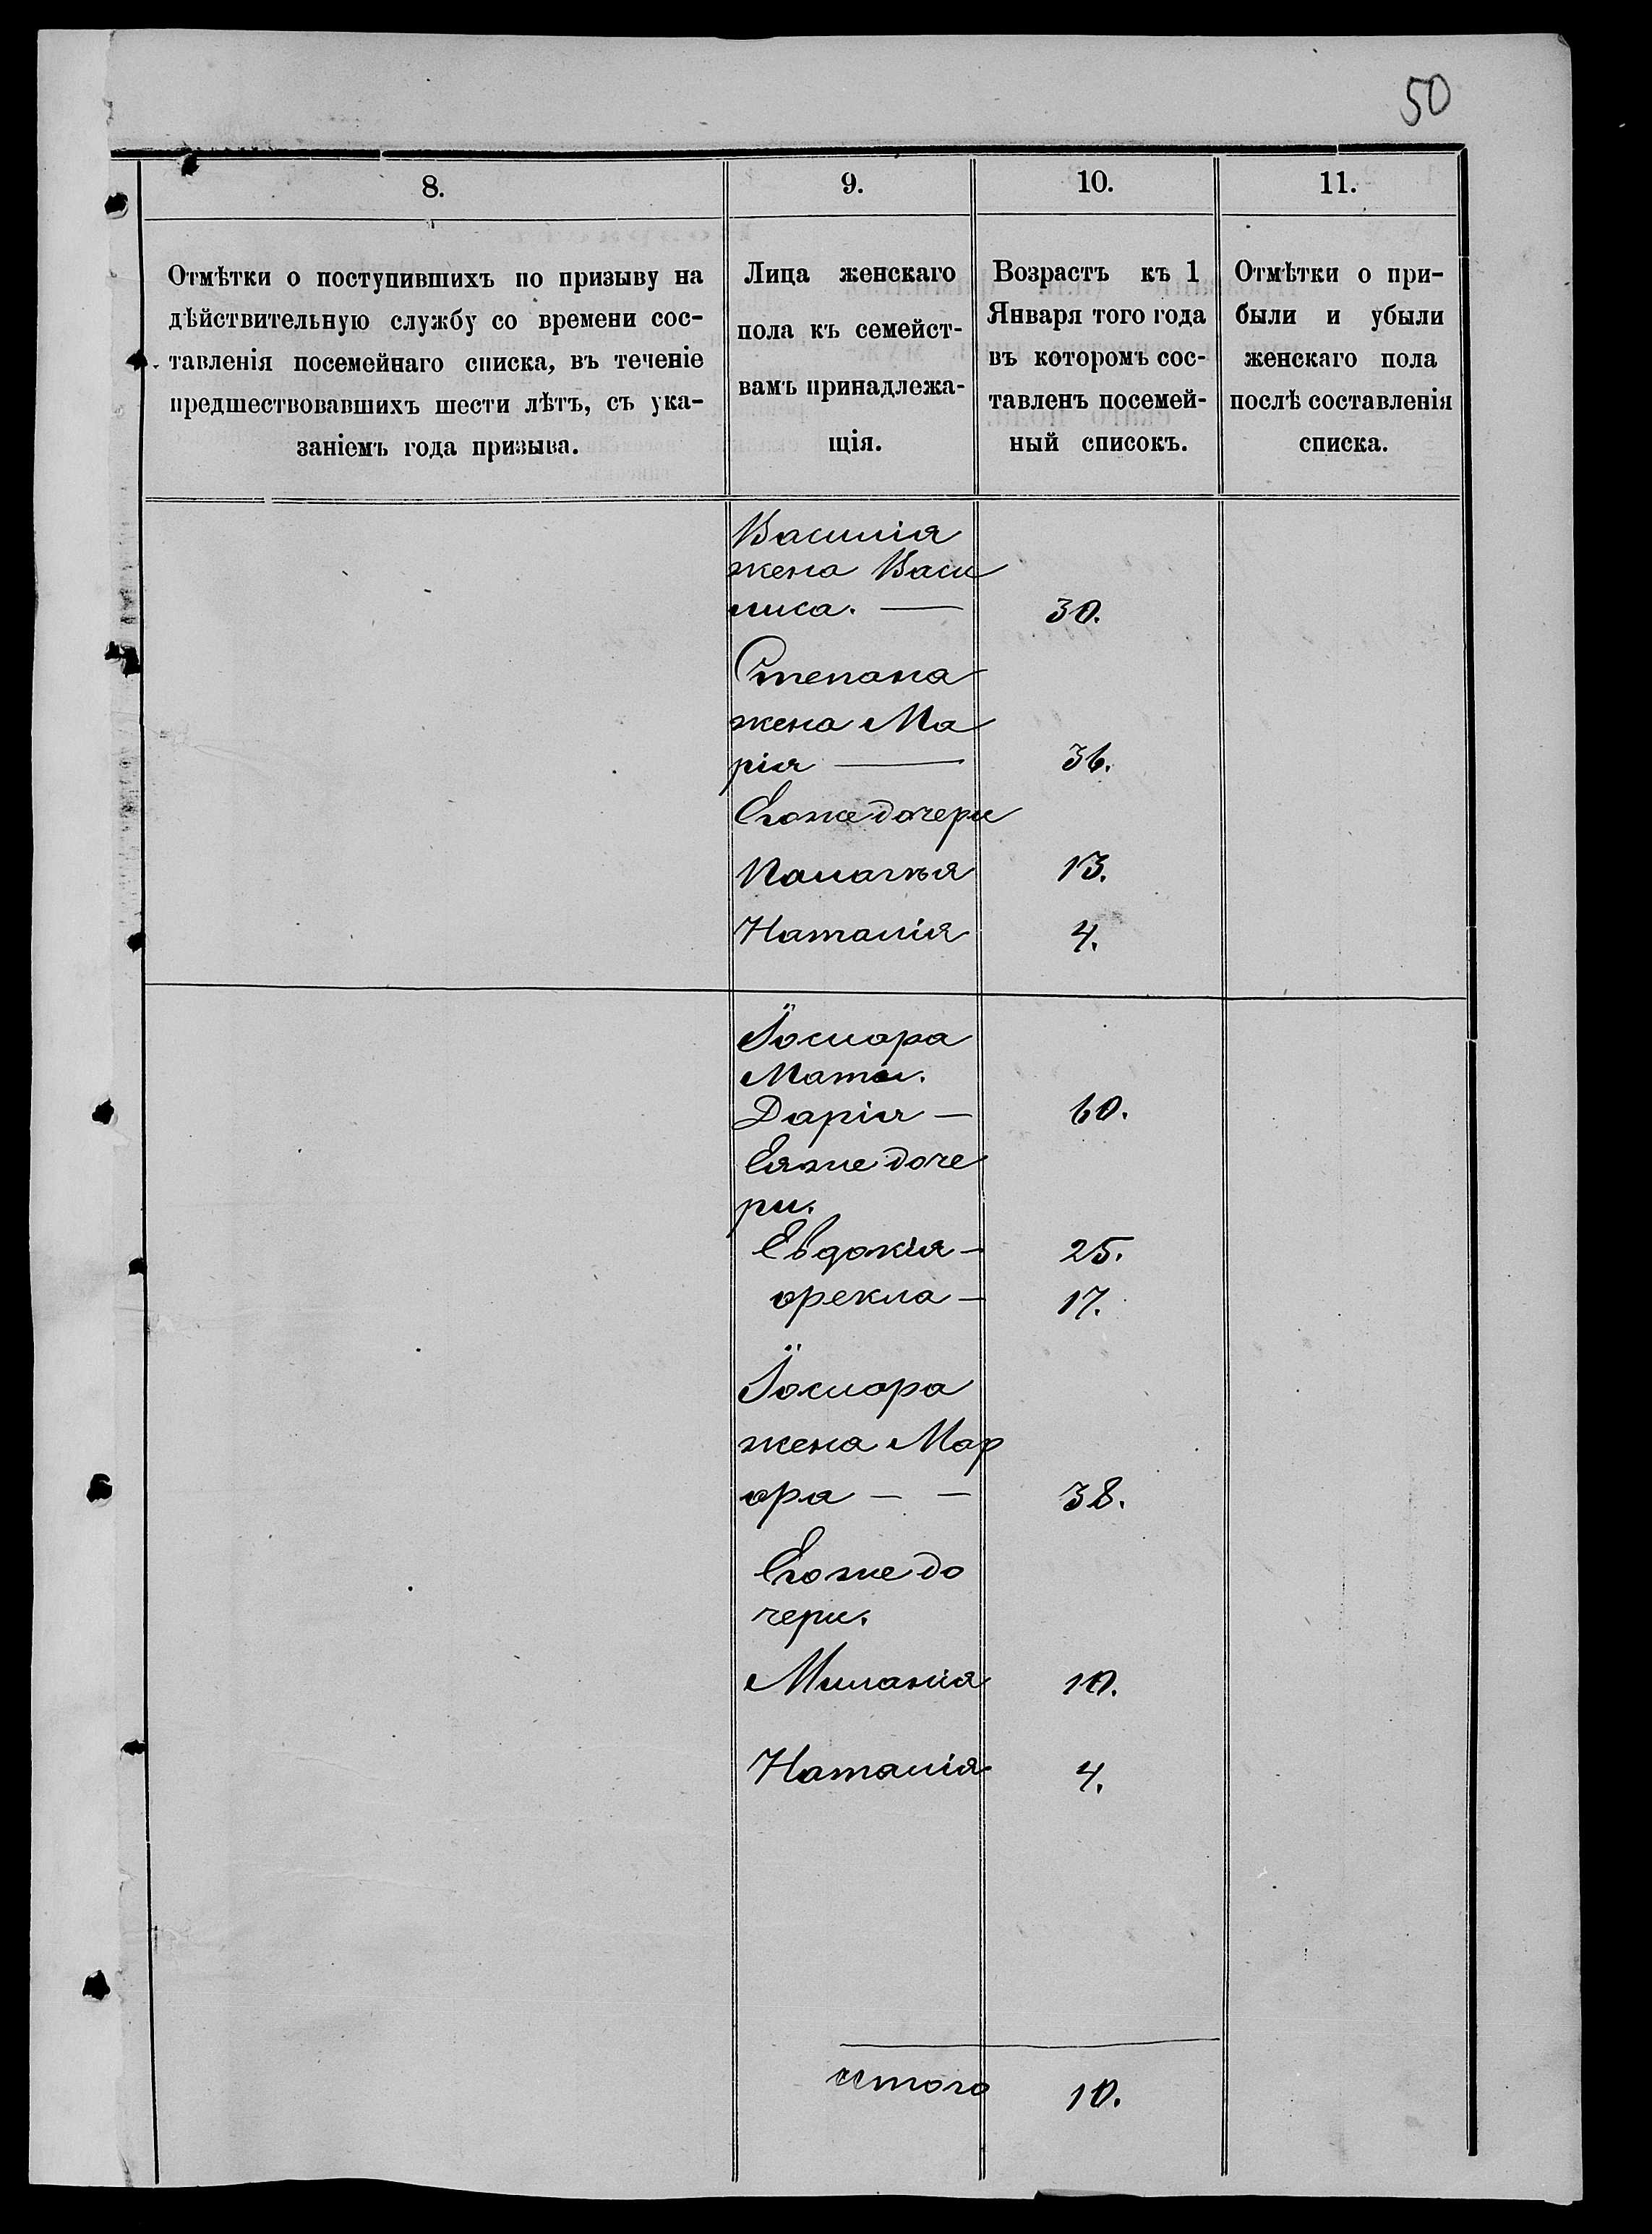 50
8.
9.
10.
11.
Отмѣтки о поступившихъ по призыву на
дѣйствительную службу со времени сос-
тавленія посемейнаго списка, въ теченіе
предшествовавшихъ шести лѣтъ, съ ука-
заніемъ года призыва.
Лица женскаго
пола къ семейст-
вамъ принадлежа-
щія.
Возрастъ къ 1
Января того года
въ которомъ сос-
тавленъ посемей-
ный списокъ.
Отмѣтки о при-
были и убыли
женскаго пола
послѣ составленія
списка.
Василія
жена Васи
лиса. — 30.
Степана
жена Ма
рія — 36.
Егоже дочери
Палагѣя 13.
Наталія 4.
Мати.
Дарія — 60.
Еяже доче
ри.
Евдокія — 25.
Ѳекла — 17.
жена Мар
ѳа — — 38.
Егоже до
чери.
Миланія 10.
Наталія 4.
итого 10.